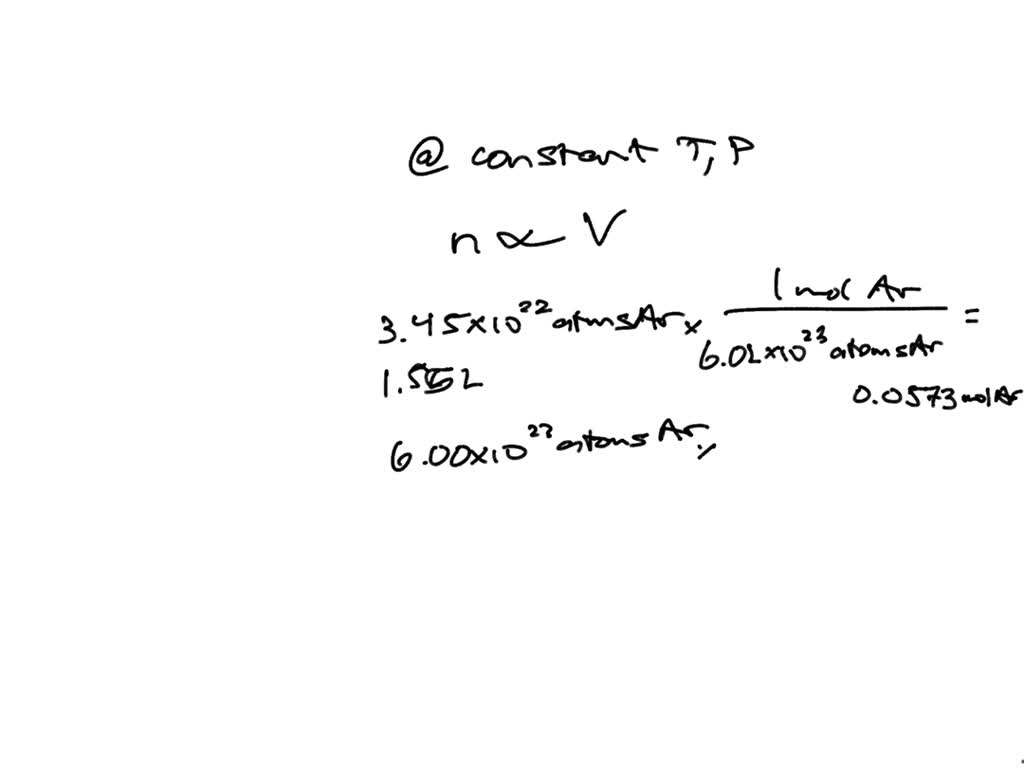 @ constant T, P
n ∝ V
3.45×10²² atoms Ar × 1 mol Ar / 6.02×10²³ atoms Ar =
1.56 L
0.0573 mol Ar
6.00×10²³ atoms Ar